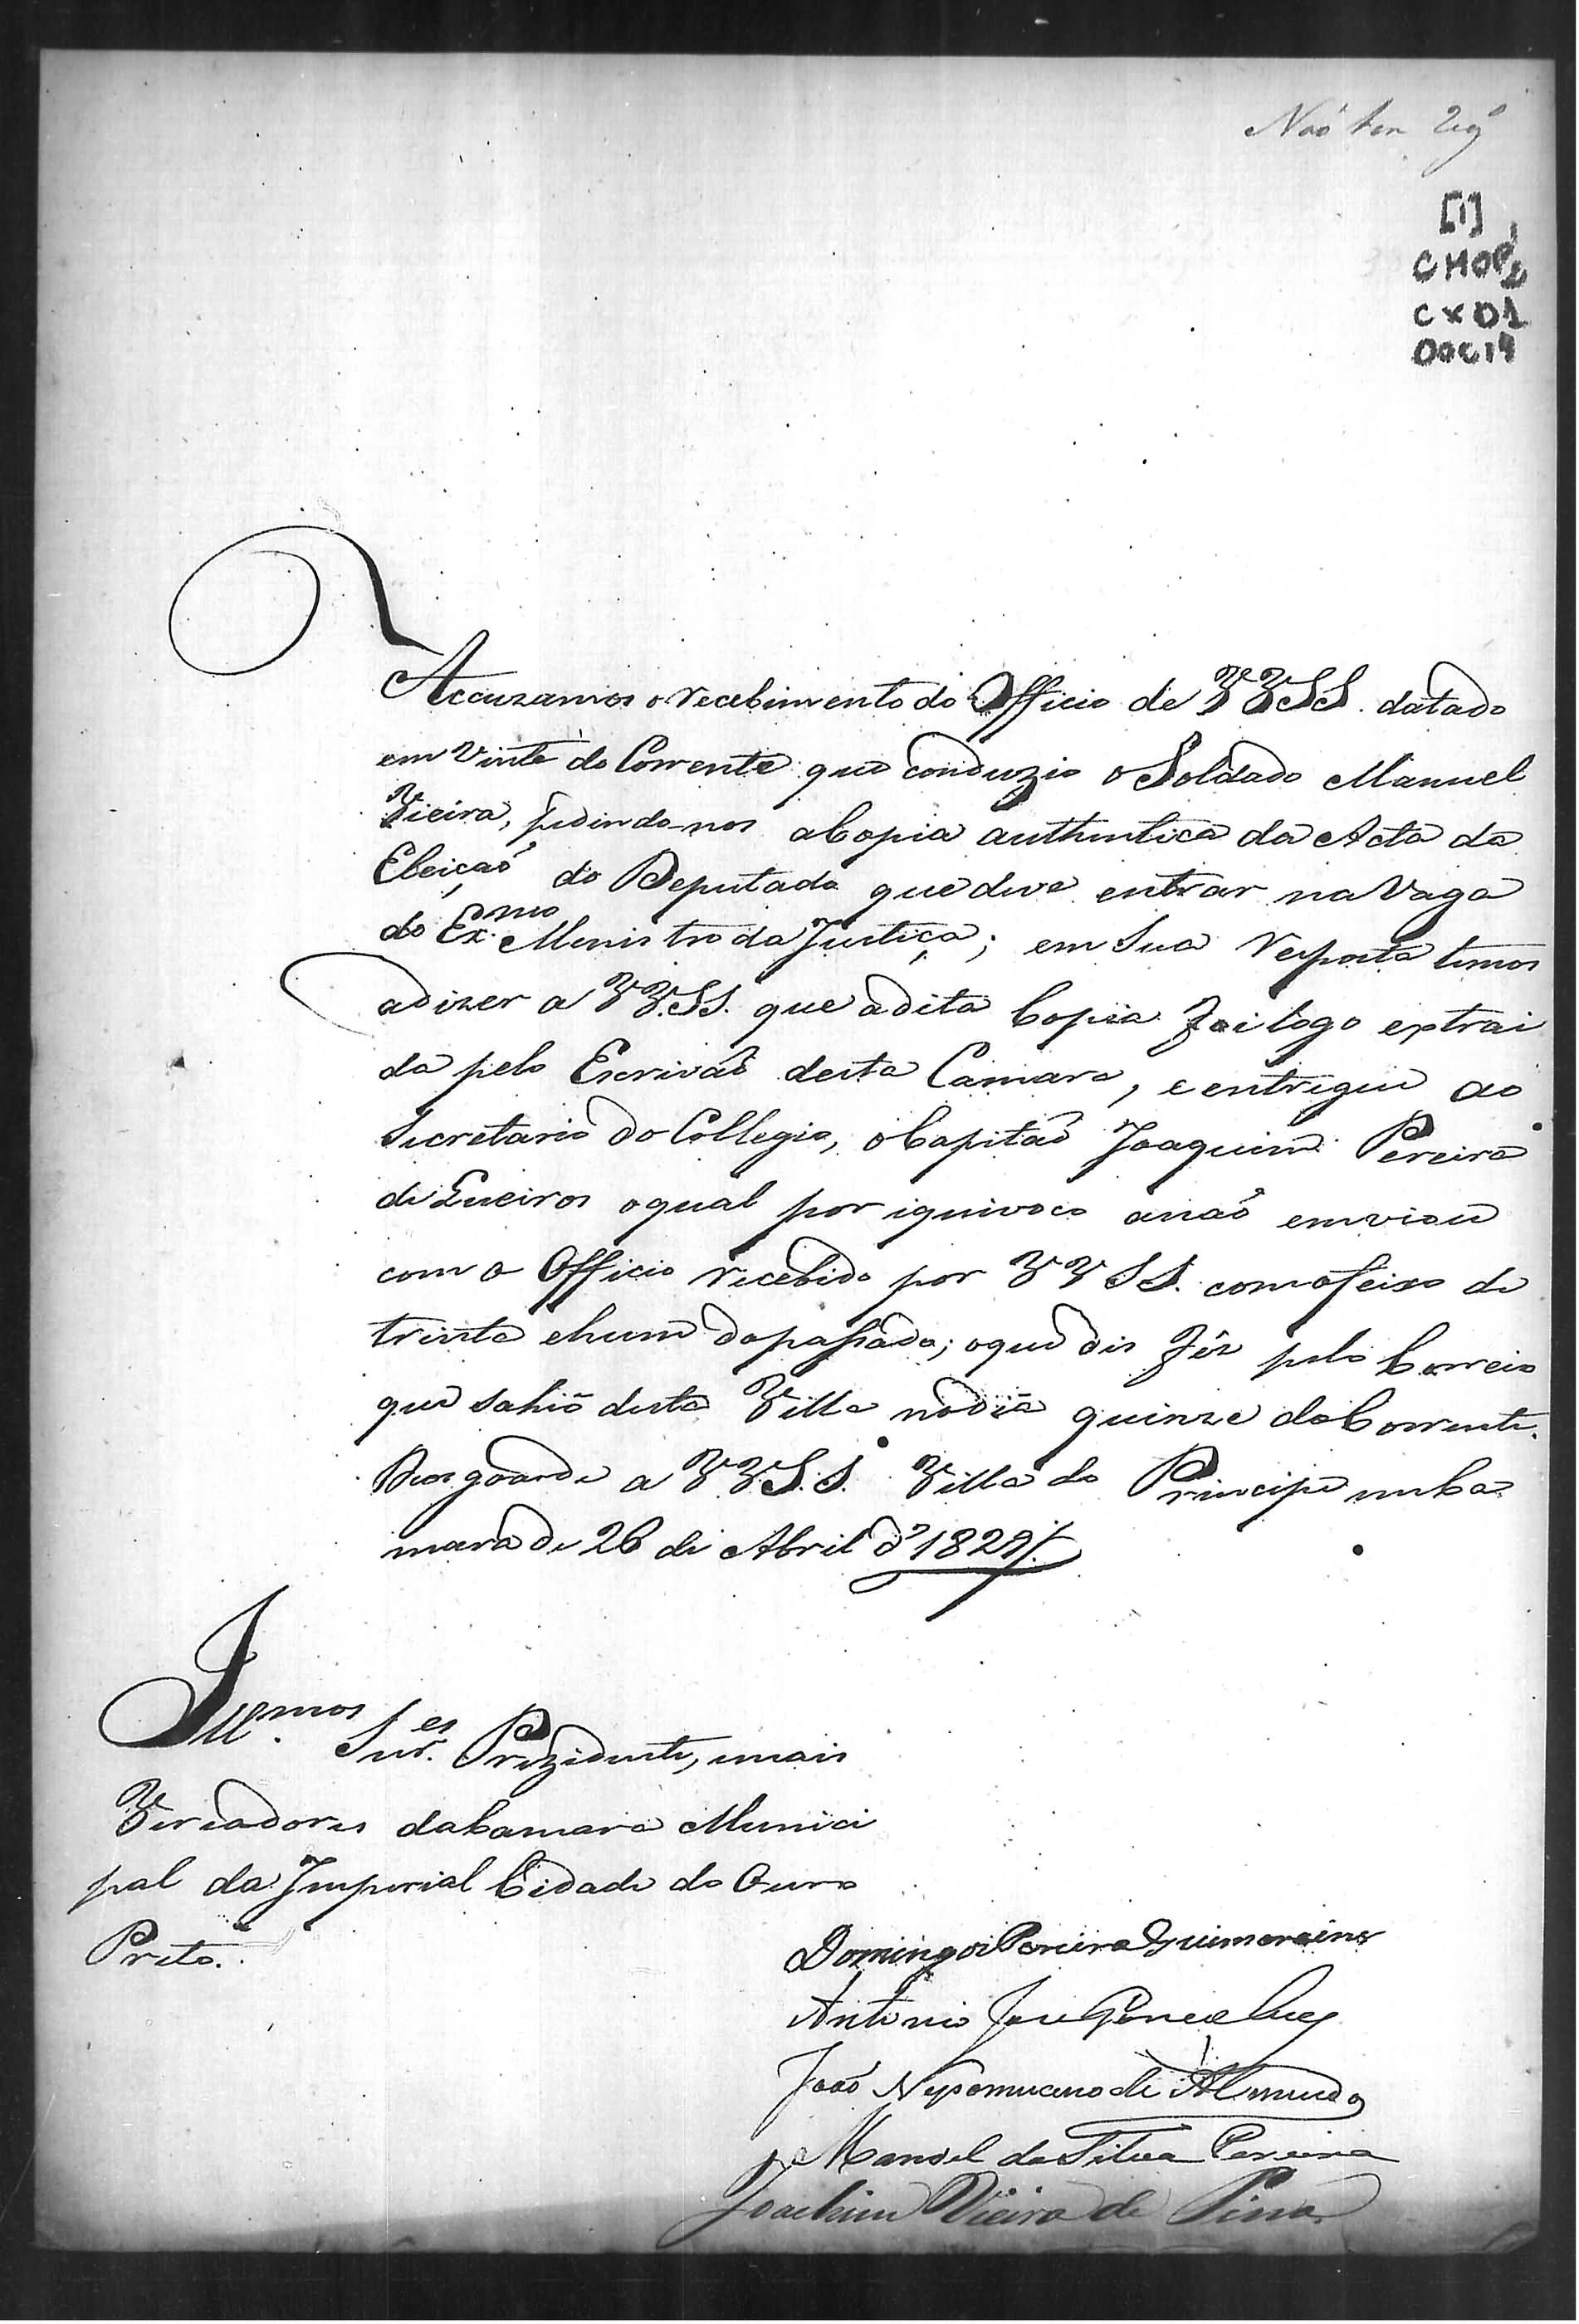 Não tem
[1]
CMOP
CX01
00014
Accuzamos o recebimento do Officio de VVSS. datado
em Vinte do Corrente que conduzio o Soldado Manuel
Vieira, pedindo nos a Copia authentica da Acta da
Eleição do Deputado que deve entrar na Vaga
do Ex.mo Menistro da Justiça; em Sua resposta temos
a dizer a VV.SS. que a dita Copia foi logo extrai
da pelo Escrivaõ desta Camara, e entregue ao
Secretario do Collegio, o Capitaõ Joaquim Pereira
de Queiros o qual por iquivoco a naõ emviou
com o Officio recebido por VVSS. com o feixo de
trinta e hum do passado; o que dis fêz pelo Correio
que sahio desta Villa no dia quinze do Corrente.
Deos goarde a VV.S.S. Villa do Principe em Ca
mara de 26 de Abril d'1829
Ill.mos Snr.es Prezidente, e mais
Vereadores da Camara Munici
pal da Imperial Cidade do Ouro
Preto.
Domingos Pereira Guimaraens
Antonio Jose Gonçalves
Joaõ Nepomuceno de Almeida
Manoel da Silva Pereira
Joachim Vieira de Pina